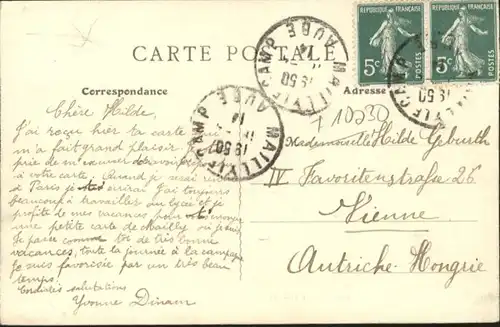 CARTE POSTALE
REPUBLIQUE FRANÇAISE
REPUBLIQUE FRANÇAISE
5c POSTES
5c POSTES
MAILLY LE CAMP AUBE
19 50
MAILLY LE CAMP AUBE
19 50
Correspondance
Adresse
Chère Hilde
J'ai reçu hier ta carte qui
m'a fait grand plaisir. Je te
prie de m'excuser de
à votre carte. Quand je serai rentrée
à Paris je J'ai toujours
beaucoup à travailler au lycée et je
profite de mes vacances pour
une petite carte de Mailly où je suis.
Je passe comme toi de très bonnes
vacances, toute la journée à la campagne
Je suis favorisée par un très beau
temps.
Cordiales salutations
Yvonne
10230
Mademoiselle Hilde Geburth
IV Favoritenstraße 26
Vienne
Autriche-Hongrie